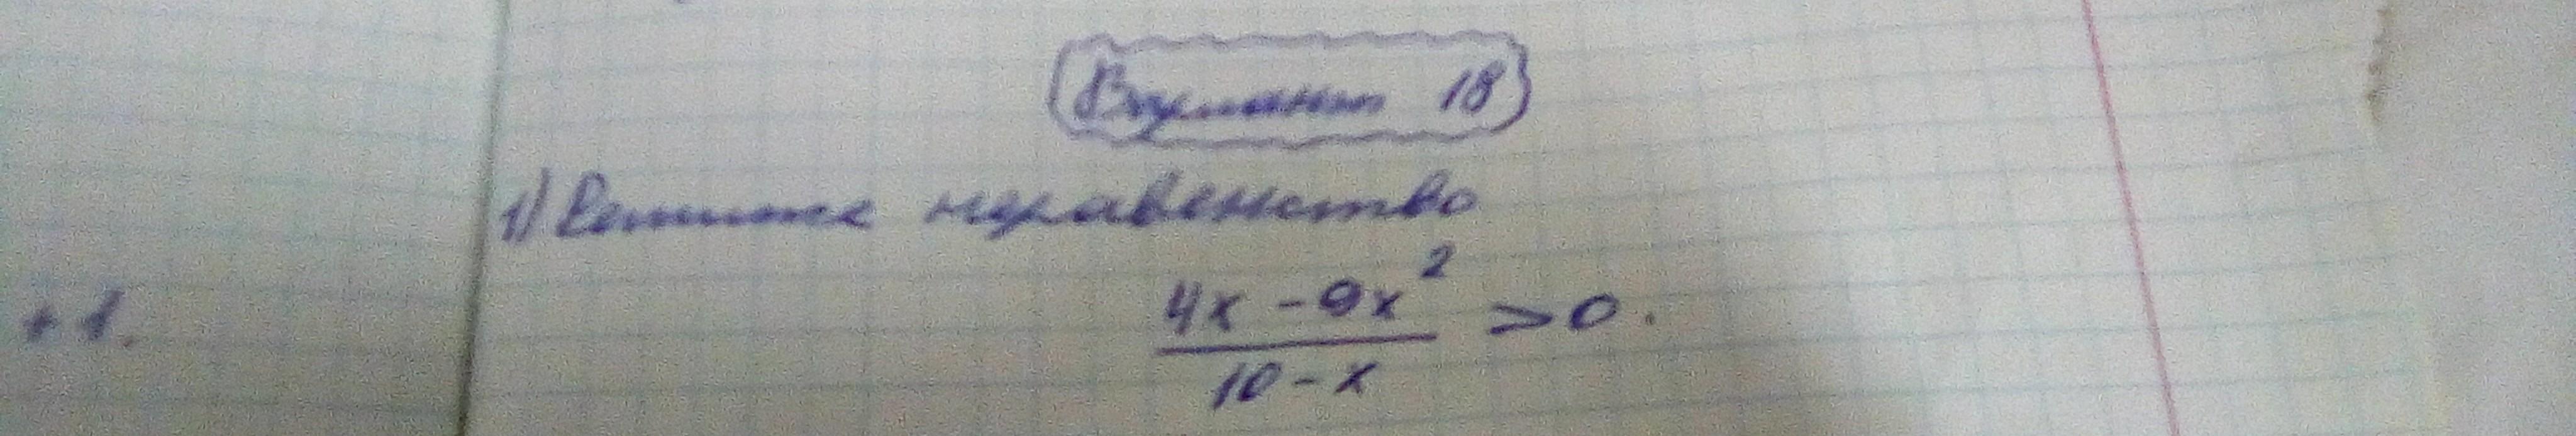 Вариант 18
1) Решите неравенство
4x - 9x²
> 0.
10 - x
+1.